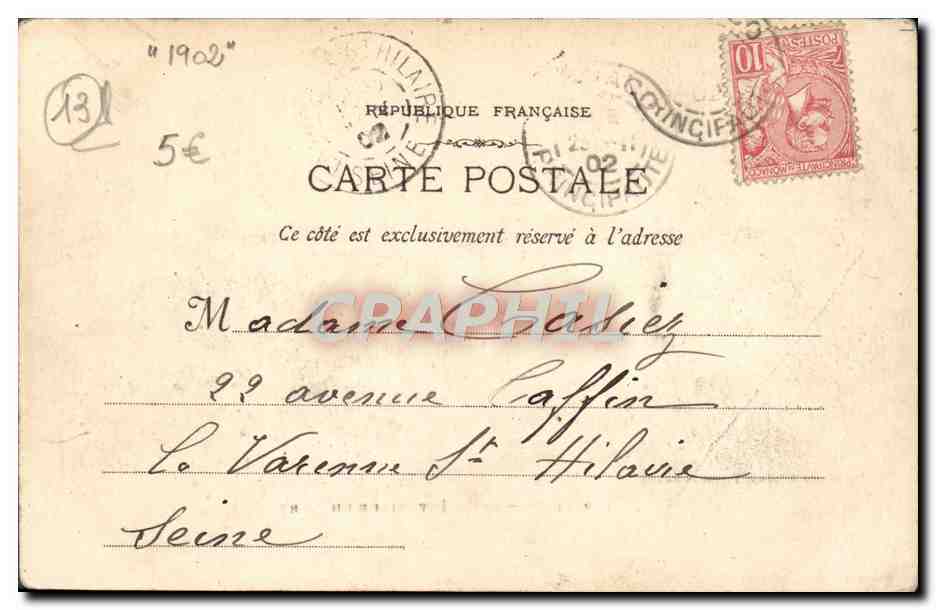 "1902"
13
5€
HILAIRE
02
SEINE
RÉPUBLIQUE FRANÇAISE
CARTE POSTALE
Ce côté est exclusivement réservé à l'adresse
PRINCIPAUTÉ
02
10
POSTES
PRINCIPAUTÉ DE MONACO
CPAPHIL
Madame Casiez
22 avenue Caffin
La Varenne St Hilaire
Seine